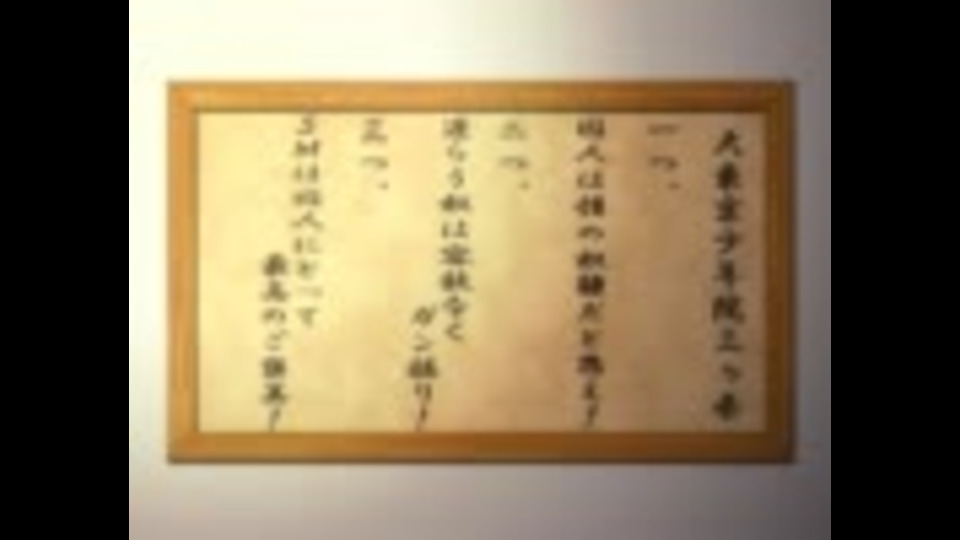 大東京少年院三ヶ条
一つ、
囚人は僕の奴隷だと思え!
二つ、
逆らう奴は容赦なく
ガン掘り!
三つ、
SMは囚人にとって
最高のご褒美!